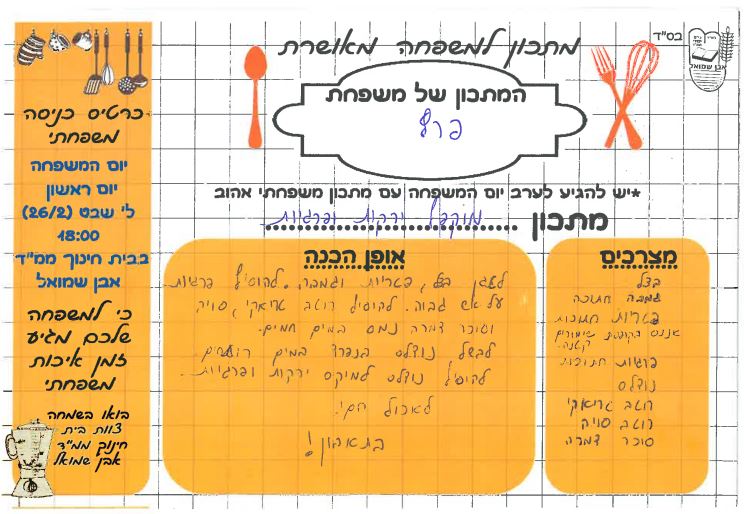 בס"ד
אבן שמואל
מתכון למשפחה מאושרת
המתכון של משפחת
פרץ
*יש להגיע לערב יום המשפחה עם מתכון משפחתי אהוב
מתכון מוקפץ ירקות ופרגיות
מצרכים
בצל
גמבה חתוכה
פטריות חתוכות
אננס בקופסת שימורים
קטנה.
פרגיות חתוכות
נודלס
רוטב טריאקי
רוטב סויה
סוכר דמרה
אופן הכנה
לטגן בצל, פטריות וגמבה. להוסיף פרגיות
על אש גבוה. להוסיף רוטב טריאקי, סויה
וסוכר דמרה נמס במים חמים.
לבשל נודלס בנפרד במים רותחים.
להוסיף נודלס למיקס ירקות ופרגיות.
לאכול חם!
בתאבון!
כרטיס כניסה
משפחתי
יום המשפחה
יום ראשון
ל' שבט (26/2)
18:00
בבית חינוך ממ"ד
אבן שמואל
כי למשפחה
שלכם מגיע
זמן איכות
משפחתי
בואו בשמחה
צוות בית
חינוך ממ"ד
אבן שמואל